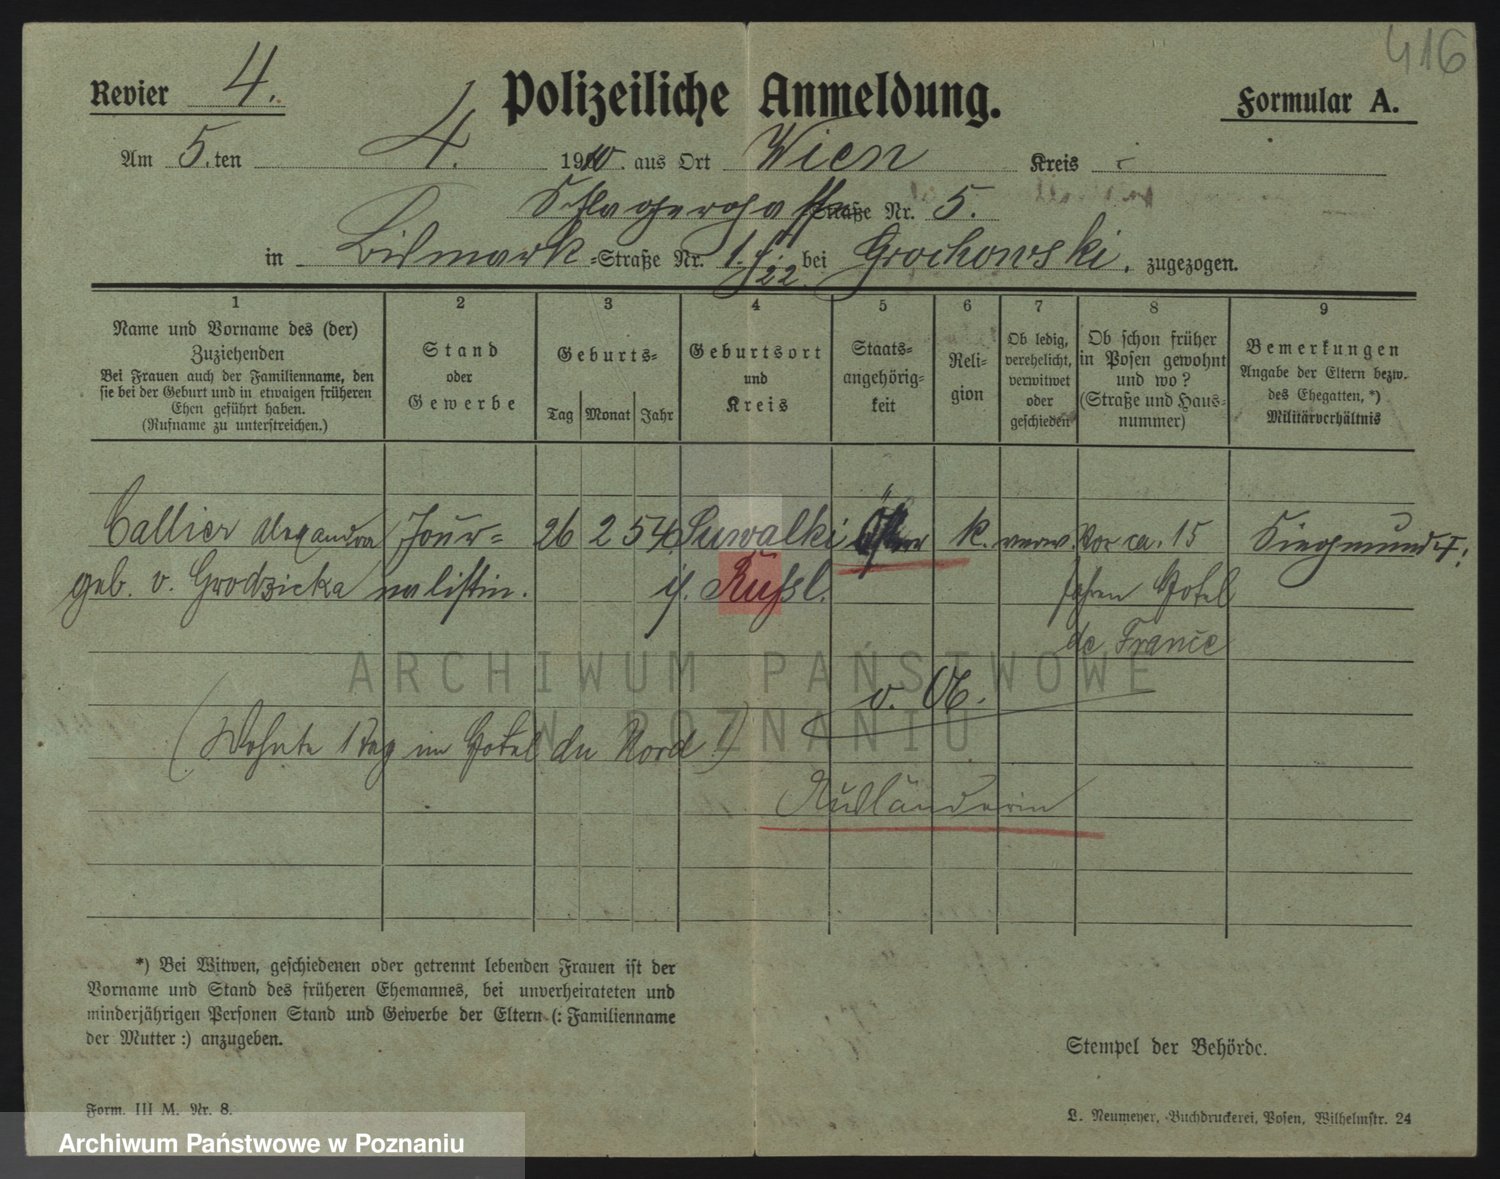 416
Revier 4. Polizeiliche Anmeldung. Formular A.
Am 5. ten 4. 1910. aus Ort Wien Kreis
Straße Nr. 5.
in Bismark-Straße Nr. 1. bei Grochowski, zugezogen.
1 2 3 4 5 6 7 8 9
Name und Vorname des (der)
Zuziehenden
Bei Frauen auch der Familienname, den
sie bei der Geburt und in etwaigen früheren
Ehen geführt haben.
(Rufname zu unterstreichen.)
Stand
oder
Gewerbe
Geburts-
Tag Monat Jahr
Geburtsort
und
Kreis
Staats-
angehörig-
keit
Reli-
gion
Ob ledig,
verehelicht,
verwitwet
oder
geschieden
Ob schon früher
in Posen gewohnt
und wo?
(Straße und Haus-
nummer)
Bemerkungen
Angabe der Eltern bezw.
des Ehegatten, *)
Militärverhältnis
Callier Alexandra Jour- 26 2 54. Suwalki k. verw. Vor ca. 15 Siegmund
geb. v. Grodzicka nalistin. i. Rußl. Jahren Hotel
de France
(Wohnte 1 Tag im Hotel du Nord!)
Ausländerin
ARCHIWUM PAŃSTWOWE
W POZNANIU
*) Bei Witwen, geschiedenen oder getrennt lebenden Frauen ist der
Vorname und Stand des früheren Ehemannes, bei unverheirateten und
minderjährigen Personen Stand und Gewerbe der Eltern (: Familienname
der Mutter :) anzugeben.
Stempel der Behörde.
Form. III M. Nr. 8.
L. Neumeyer, Buchdruckerei, Posen, Wilhelmstr. 24
Archiwum Państwowe w Poznaniu